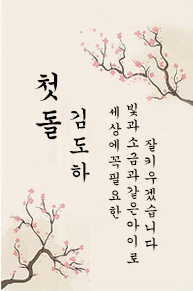 첫돌
김도하
세상에꼭필요한
빛과소금과같은아이로
잘키우겠습니다